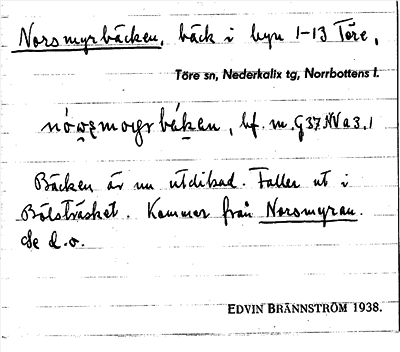 Norsmyrbäcken, bäck i byn 1-13 Töre,
Töre sn, Nederkalix tg, Norrbottens l.
bf. m. G37 NV a 3.1
Bäcken är nu utdikad. Faller ut i
Bölsträsket. Kommer från Norsmyran.
Se d.o.
EDVIN BRÄNNSTRÖM 1938.